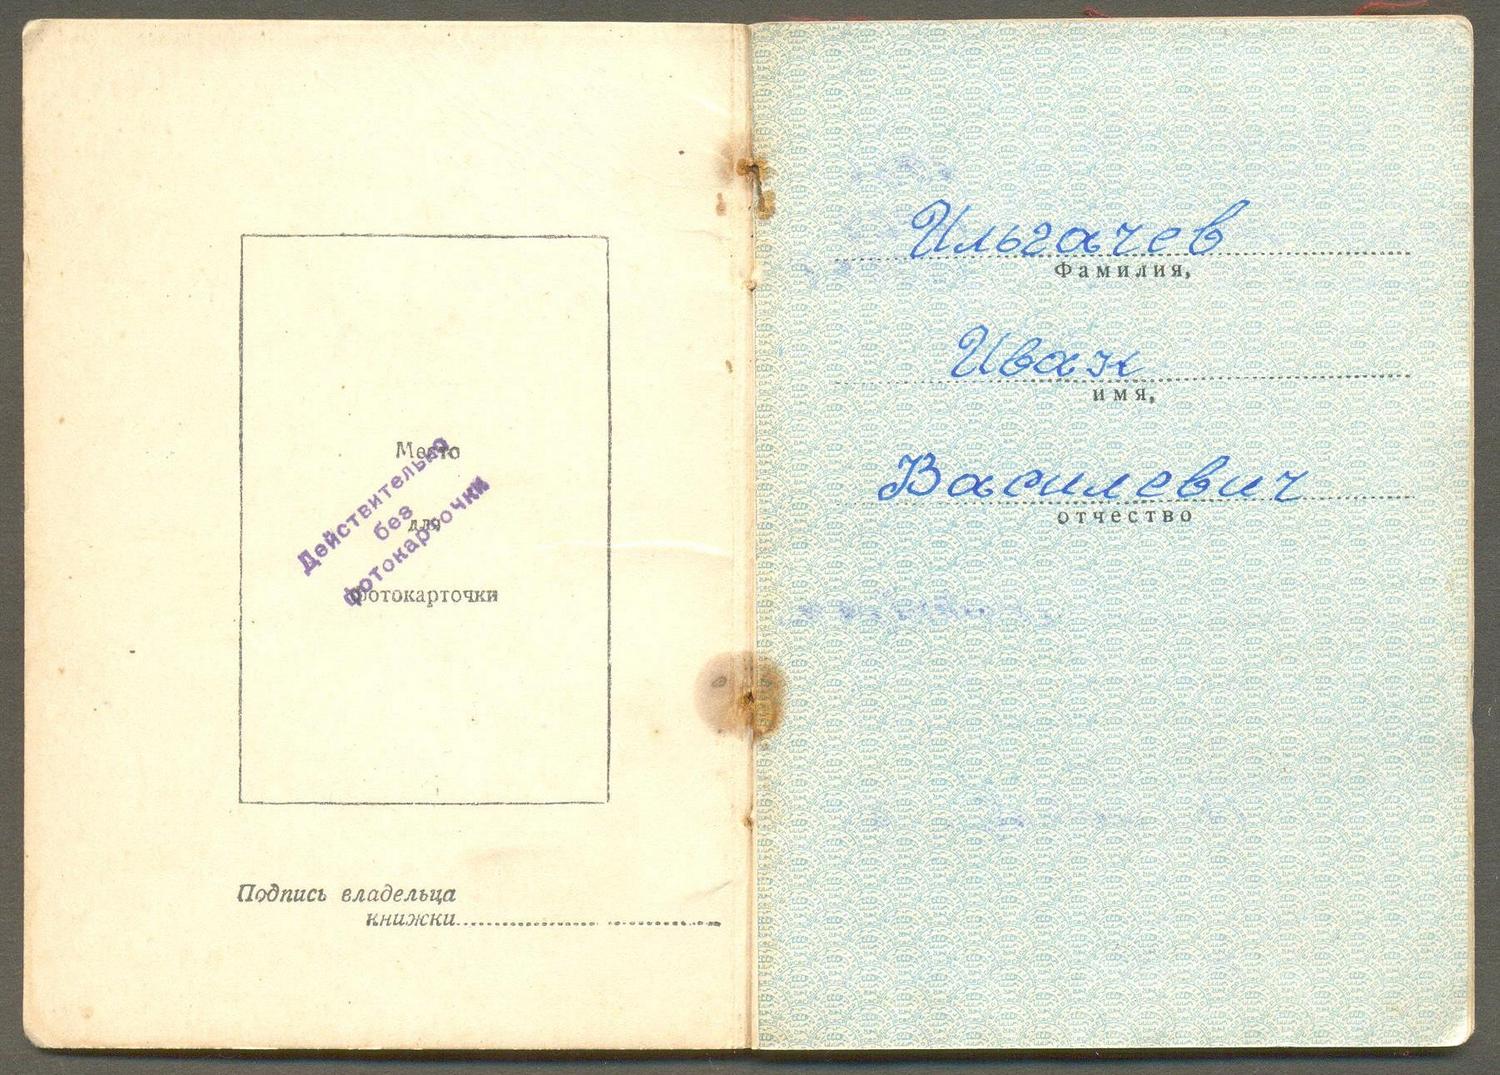 Место
для
фотокарточки
Действительно
без
фотокарточки
Подпись владельца
книжки
Ильгачев
Фамилия,
Иван
имя,
Василевич
отчество